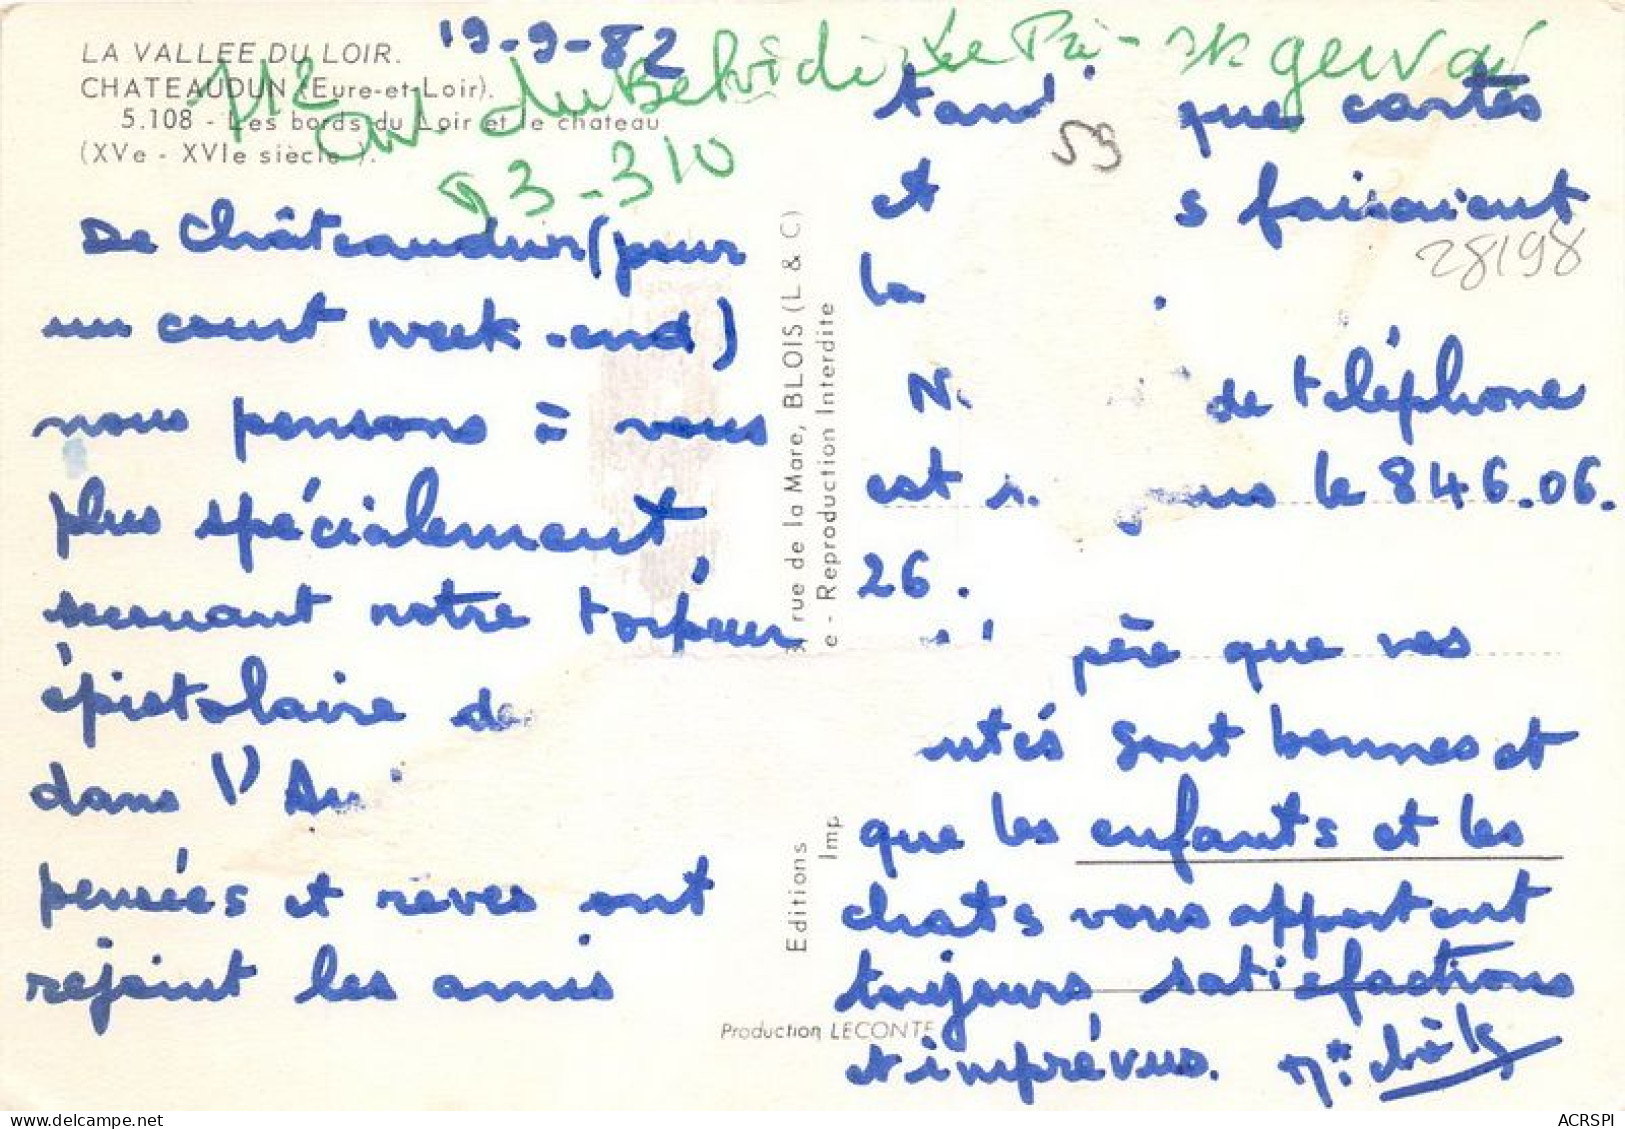 LA VALLEE DU LOIR.
19-9-82
CHATEAUDUN (Eure-et-Loir).
5.108 - Les bords du Loir et le chateau
(XVe - XVIe siècle).
112 du Belvédère Le Pré - St gervais
93-310
De Châteaudun (pour
un court week-end)
nous pensons à vous
plus spécialement,
secouant notre torpeur
épistolaire de
dans l'Au
pensées et rêves ont
rejoint les amis
rue de la Mare, BLOIS (L & C)
e - Reproduction Interdite
Editions
Imp
Production LECONTE
tand que cartes
59
et s faisaient
28198
la
N. de téléphone
est le 846.06.
26.
père que vos
utés sont bonnes et
que les enfants et les
chats vous apportent
toujours satisfactions
et imprévus.
ACRSPI